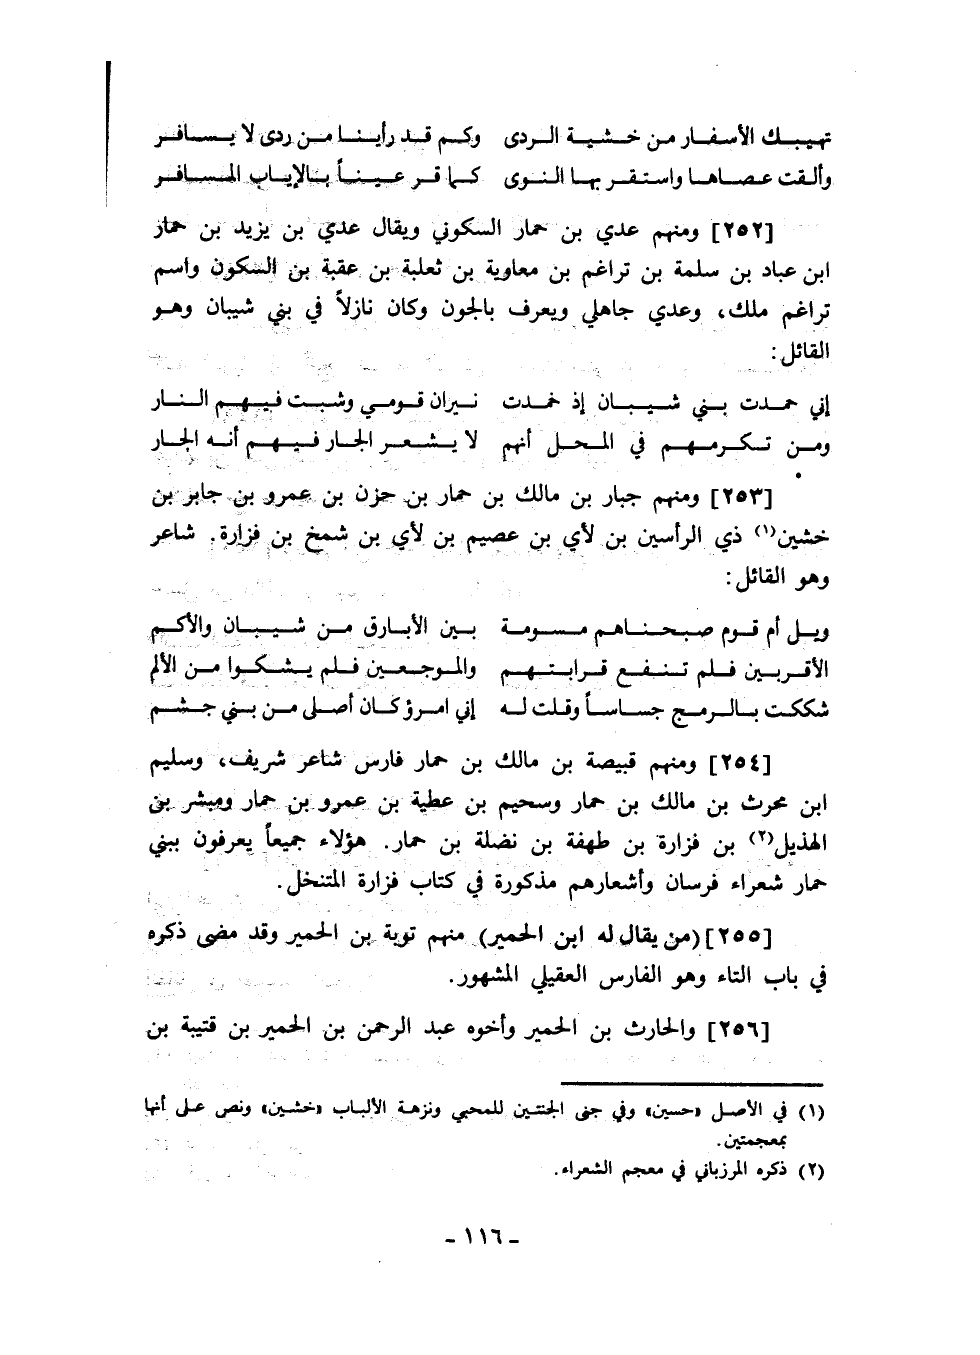 تهيبك الأسفار من خشية الردى وكم قد رأينا من ردى لا يسافر
وألقت عصاها واستقر بها النوى كما قر عيناً بالإياب المسافر
[٢٥٢] ومنهم عدي بن حمار السكوني ويقال عدي بن يزيد بن حمار
ابن عباد بن سلمة بن تراغم بن معاوية بن ثعلبة بن عقبة بن السكون واسم
تراغم ملك، وعدي جاهلي ويعرف بالجون وكان نازلاً في بني شيبان وهو
القائل:
إني حمدت بني شيبان إذ خمدت نيران قومي وشبت فيهم النار
ومن تكرمهم في المحل أنهم لا يشعر الجار فيهم أنه الجار
[٢٥٣] ومنهم جبار بن مالك بن حمار بن حزن بن عمرو بن جابر بن
خشين(١) ذي الرأسين بن لأي بن عصيم بن لأي بن شمخ بن فزارة. شاعر
وهو القائل:
ويل أم قوم صبحناهم مسومة بين الأبارق من شيبان والأكم
الأقربين فلم تنفع قرابتهم والموجعين فلم يشكوا من الألم
شككت بالرمح جساساً وقلت له إني امرؤ كان أصلي من بني جشم
[٢٥٤] ومنهم قبيصة بن مالك بن حمار فارس شاعر شريف، وسليم
ابن محرث بن مالك بن حمار وسحيم بن عطية بن عمرو بن حمار ومبشر بن
الهذيل(٢) بن فزارة بن طهفة بن نضلة بن حمار. هؤلاء جميعاً يعرفون ببني
حمار شعراء فرسان وأشعارهم مذكورة في كتاب فزارة المتنخل.
[٢٥٥](من يقال له ابن الحمير) منهم توبة بن الحمير وقد مضى ذكره
في باب التاء وهو الفارس العقيلي المشهور.
[٢٥٦] والحارث بن الحمير وأخوه عبد الرحمن بن الحمير بن قتيبة بن
(١) في الأصل «حسين» وفي جنى الجنتين للمحبي ونزهة الألباب «خشين» ونص على أنها
بمعجمتين.
(٢) ذكره المرزباني في معجم الشعراء.
- ١١٦ -